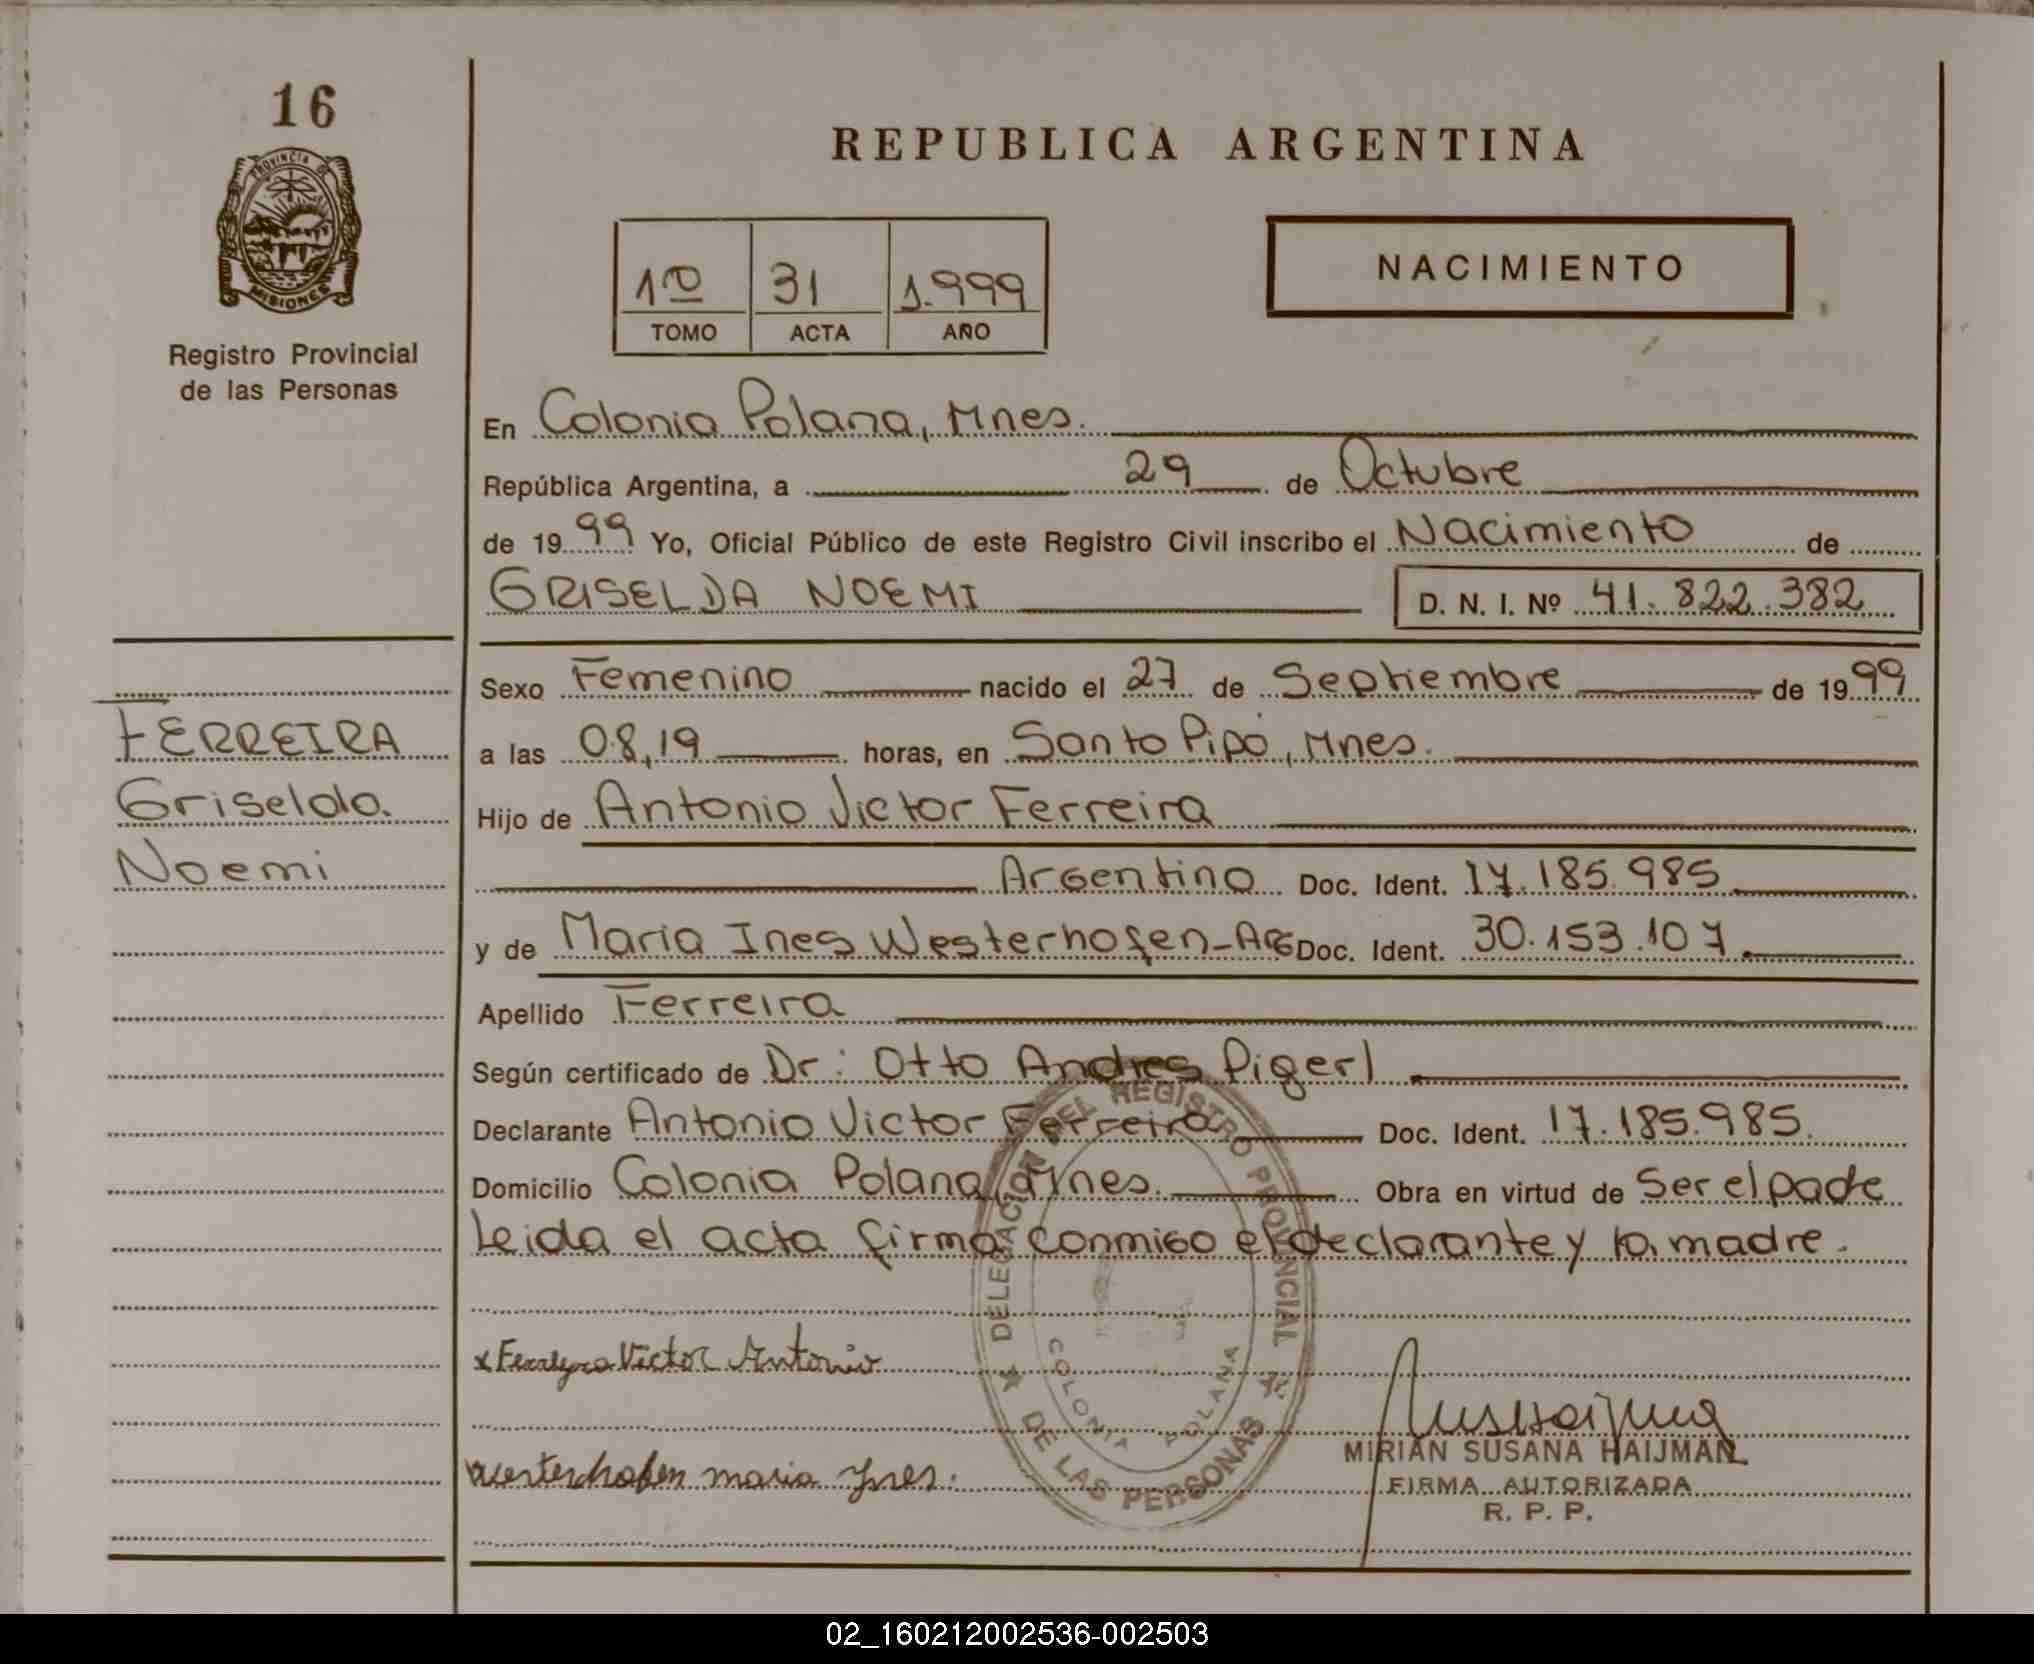 16
PROVINCIA DE
MISIONES
Registro Provincial
de las Personas
FERREIRA
Griselda
Noemi
REPUBLICA ARGENTINA
1º 31 1.999
TOMO ACTA AÑO
NACIMIENTO
En Colonia Polana, Mnes.
República Argentina, a 29 de Octubre
de 1999 Yo, Oficial Público de este Registro Civil inscribo el Nacimiento de
GRISELDA NOEMI D. N. I. Nº 41.822.382
Sexo Femenino nacido el 27 de Septiembre de 1999
a las 08,19 horas, en Santo Pipó, Mnes.
Hijo de Antonio Victor Ferreira
Argentino Doc. Ident. 17.185.985
y de Maria Ines Westerhofen-AG Doc. Ident. 30.153.107
Apellido Ferreira
Según certificado de Dr: Otto Andres Pigerl
Declarante Antonio Victor Ferreira Doc. Ident. 17.185.985
Domicilio Colonia Polana, Mnes. Obra en virtud de Ser el pade
Leida el acta firma conmigo el declarante y la madre.
DELEGACION DEL REGISTRO PROVINCIAL
DE LAS PERSONAS
COLONIA POLANA
x Ferreyra Victor Antonio
Westerhofen maria Ynes.
MIRIAN SUSANA HAIJMAN
FIRMA AUTORIZADA
R. P. P.
02_160212002536-002503